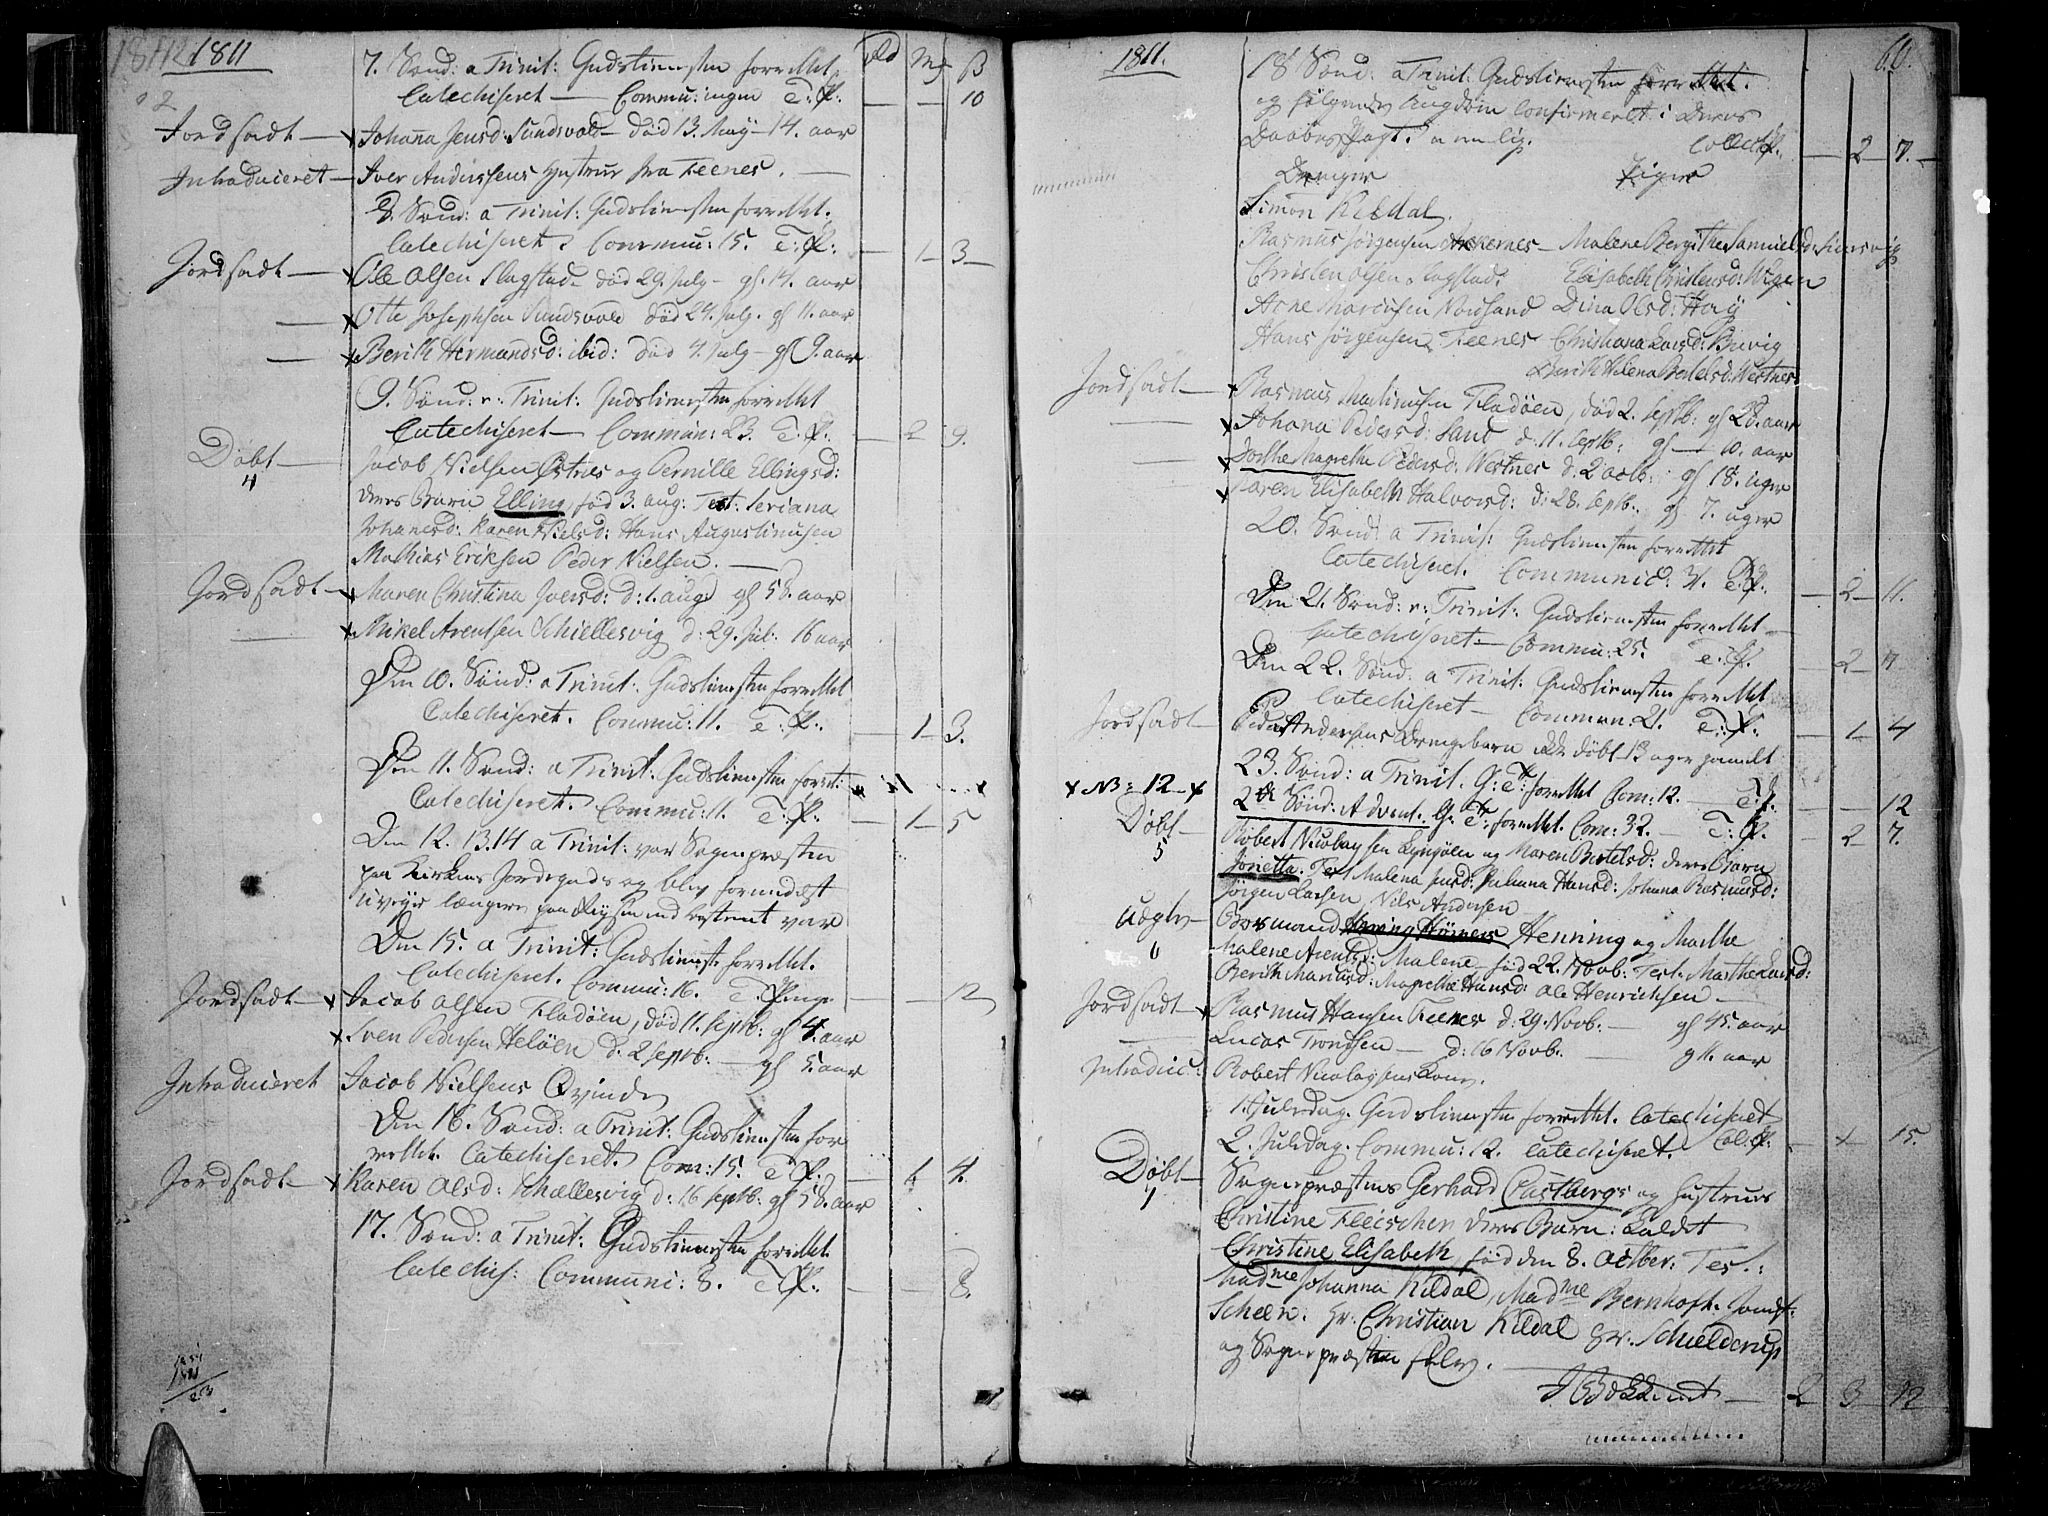 1811
Rd Mk ß
7. Sønd: a Trinit: Gudstienesten forrettet
Catechiseret — Commu: ingen T: P. — — 10
Jordfædt — x Johana Jensd: Sundsvold — død 13. May — 14. aar
Introduceret — Iver Anderssens Hustrue fra Teenes. —
8. Sønd: a Trinit: Gudstienesten forrettet.
Catechiseret. Commu: 15. T: P: — 1 — 3 —
Jordfædt — x Ole Olsen Slagstad død 29. July — gl. 14. aar
— x Otte Josephsen Sundsvold død 24. July. gl 11. aar
— x Berith Hermandsd: ibid: død 4. July — gl 9. aar
9. Sønd: a: Trinit: Gudstienesten forrettet
Catechiseret — Commun: 23. T. P. — 2 9.
Døbt — Jacob Nielsen Østnes og Pernille Ellingsd:
4 deres Barn Elling, fød 3. aug: Test: Seriana
Johanesd: Karen Nielsd: Hans Augustinusen
Mathias Eriksen Peder Nielsen. —
Jordfædt — x Maren Christina Iversd: d: 1. aug: gl 58. aar
— x Mikel Arentsen Schiellesvig d: 29. Jul: 16 aar
Den 10. Sønd: a Trinit: Gudstienesten forrettet
Catechiseret. Commu: 11. T: P: — 1 — 3.
Den 11. Sønd: a Trinit: Gudstienesten forret:
Catechiseret. Commu: 11. T: P: — 1 — 5
Den 12. 13. 14 a Trinit: var Sognepræsten
paa Kirkens Jordegods og blev formedelst
uveyr længere paa Reysen end bestemt var
Den 15. a Trinit: Gudstieneste forrettet.
Catechiseret. Commu: 16. T. Penge — — 12
Jordfædt — x Jacob Olsen Fladøen, død 11. Septb: gl 4. aar
x Sven Pedersen Heløen d. 2 Septb: — gl 5. aar
Introduceret Jacob Nielsens Qvinde
Den 16. Sønd: a Trinit: Gudstienesten for
rettet. Catechiseret. Com: 15. T P: — 1. 4.
Jordfædt — x Karen Olsd: Schællesvig d: 16 Septb: gl 58. aar
17. Sønd: a Trinit: Gudstienesten forrettet
Catechis: Communi: 8. T P: — — 8.
1811. 60.
18 Sønd: a Trinit: Gudstienesten forrettet.
og følgende Ungdom Confirmeret i Deres
Daabes Pagt. nemlig. Collect P. — 2 — 7. —
Drenger Piger
Simon Kildal.
Rasmus Jørgensen Aakernes — Malene Bergithe Samuelsd:
Christen Olsen Slagstad. Elisabeth Christensd: Vigen
Arne Marcusen Nordsand Dina Olsd: Høy
Hans Jørgensen Teenes Christiana Larsd: Brevig
Berith Helena Bertelsd: Westnes
Jordfædt — x Rasmus Martinusen Fladøen, død 2. Septb: gl 28. aar
— x Johana Pedersd: Sand d: 11. Septb: gl — 10. aar
— x Dorthe Magrethe Pedersd: Westnes d. 2 octb: gl 18. uger
x Karen Elisabeth Halvorsd: d: 28. Septb. gl 7. uger
20. Sønd: a Trinit: Gudstienesten forrettet
Catechiseret. Communic: 31. T: P. — 2 — 11.
Den 21. Sønd: a: Trinit: Gudstienesten forrettet —
Catechiseret — Commu: 25. T: P. — 2 — 7
Den 22. Sønd: a Trinit: Gudstienesten forrettet
Catechiseret — Commun. 21. T: P. — 1 — 4
Jordfædt — Peder Andersens Drengebarn ikke døbt 13 uger gamelt
23. Sønd: a Trinit. G: T: forrettet Com: 12. — T. P. — — 12
x NB: 12 — x 2de Sønd: Advent. G: T: forrettet. Com: 32. — T: P. — 2 — 7.
Døbt — Robert Nicolaysen Lyngøen og Maren Bertelsd: deres Barn
5 Jonetta. Test Malena Jensd: Juliana Hansd: Johana Rasmusd:
Jørgen Larsen, Nils Andersen
Uægte — Boesmand Henning og Marthe
6 Malene Arentsd: Malene — fød 22. Novb: Test. Marthe Larsd:
Berith Mariusd: Magrethe Hansd: Ole Henrichsen —
Jordfædt — x Rasmus Hansen Teenes d: 29. Novb. — gl 45. aar
— Lucas Trondsen — d: 16 Novb. — gl 11. aar
Introduc: Robert Nicolaysens Kone.
1. Juledag. Gudstienesten forrettet. Catechiseret
2. Juledag. Commu: 12. Catechiseret. Col: P. — x — 15.
Døbt — Sognepræstens Gerhard Castbergs og Hustrues
7 Christine Fleischer deres Barn: kaldet
Christine Elisabeth, fød den 8. octber. Test:
Madme Johanna Kildal, Madme Bernhoft. Jomf:
Scheen. Hr. Christian Kildal Hr. Schielderup
og Sognepræsten selv. —
— 2 3 12